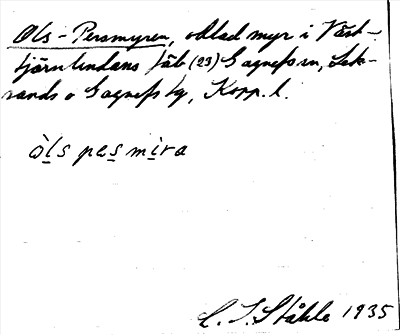 Ols-Persmyren, odlad myr i Väst-
tjärnlindans fäb (23) Gagnefs sn, Lek-
sands o Gagnefs tg, Kopp. l.
òls pes mira
C. I. Ståhle 1935